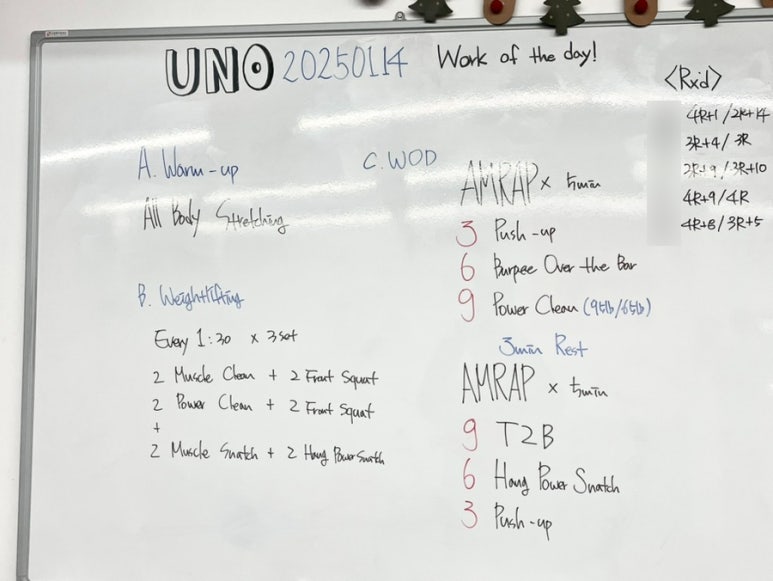 UNO 20250114 Work of the day!
A. Warm-up
All Body Stretching
B. Weightlifting
Every 1:30 x 3set
2 Muscle Clean + 2 Front Squat
2 Power Clean + 2 Front Squat
+
2 Muscle Snatch + 2 Hang Power Snatch
C. WOD
AMRAP x 5min
3 Push-up
6 Burpee Over the Bar
9 Power Clean (95lb/65lb)
3min Rest
AMRAP x 5min
9 T2B
6 Hang Power Snatch
3 Push-up
<Rxd>
4R+1 / 2R+14
3R+4 / 3R
2R+9 / 3R+10
4R+9 / 4R
4R+8 / 3R+5